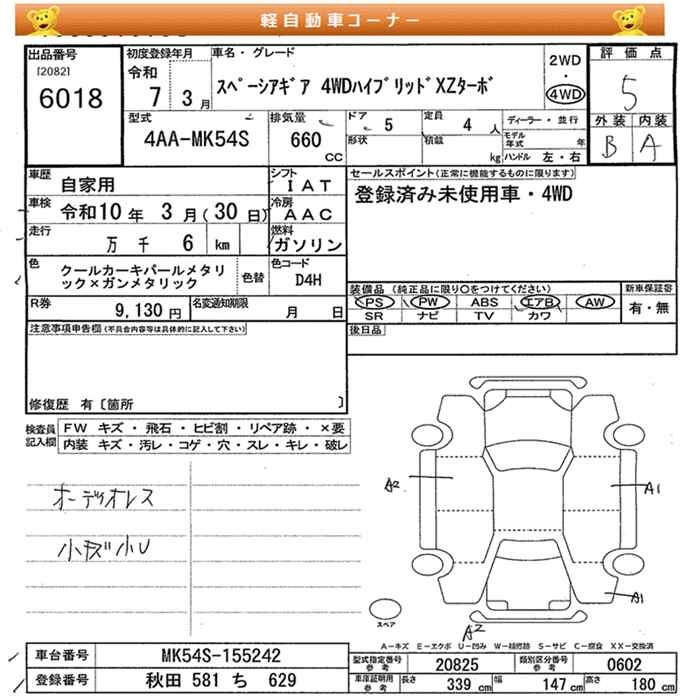 軽自動車コーナー
出品番号
[2082]
6018
初度登録年月
令和
7 3 月
車名・グレード
スペーシアギア 4WDハイブリッドXZターボ
2WD
・
4WD
評価点
5
外装 内装
B A
型式
4AA-MK54S
排気量
660
CC
ドア
5
定員
4 人
形状
積載
kg
ディーラー・並行
モデル年式 年
ハンドル 左・右
車歴
自家用
シフト
IAT
車検
令和10 年 3 月(30 日)
冷房
AAC
走行
万 千 6 km
燃料
ガソリン
色
クールカーキパールメタリ
ック×ガンメタリック
色替
色コード
D4H
R券
9,130 円
名変通知期限
月 日
セールスポイント(正常に機能するものに限ります)
登録済み未使用車・4WD
装備品 (純正品に限り○をつけてください)
PS PW ABS エアB AW
SR ナビ TV カワ
新車保証書
有・無
後日品
注意事項申告欄(不具合内容等は具体的に記入して下さい)
修復歴 有〔箇所 〕
検査員
記入欄
FW キズ・飛石・ヒビ割・リペア跡・×要
内装 キズ・汚レ・コゲ・穴・スレ・キレ・破レ
オーディオレス
小キズ小U
A2
A1
A1
A2
スペア
A-キズ E-エクボ U-凹み W-補修跡 S-サビ C-腐食 XX-交換済
車台番号
MK54S-155242
登録番号
秋田 581 ち 629
型式指定番号
参考
20825
類別区分番号
参考
0602
車庫証明用
参考
長さ 339 cm 幅 147 cm 高さ 180 cm